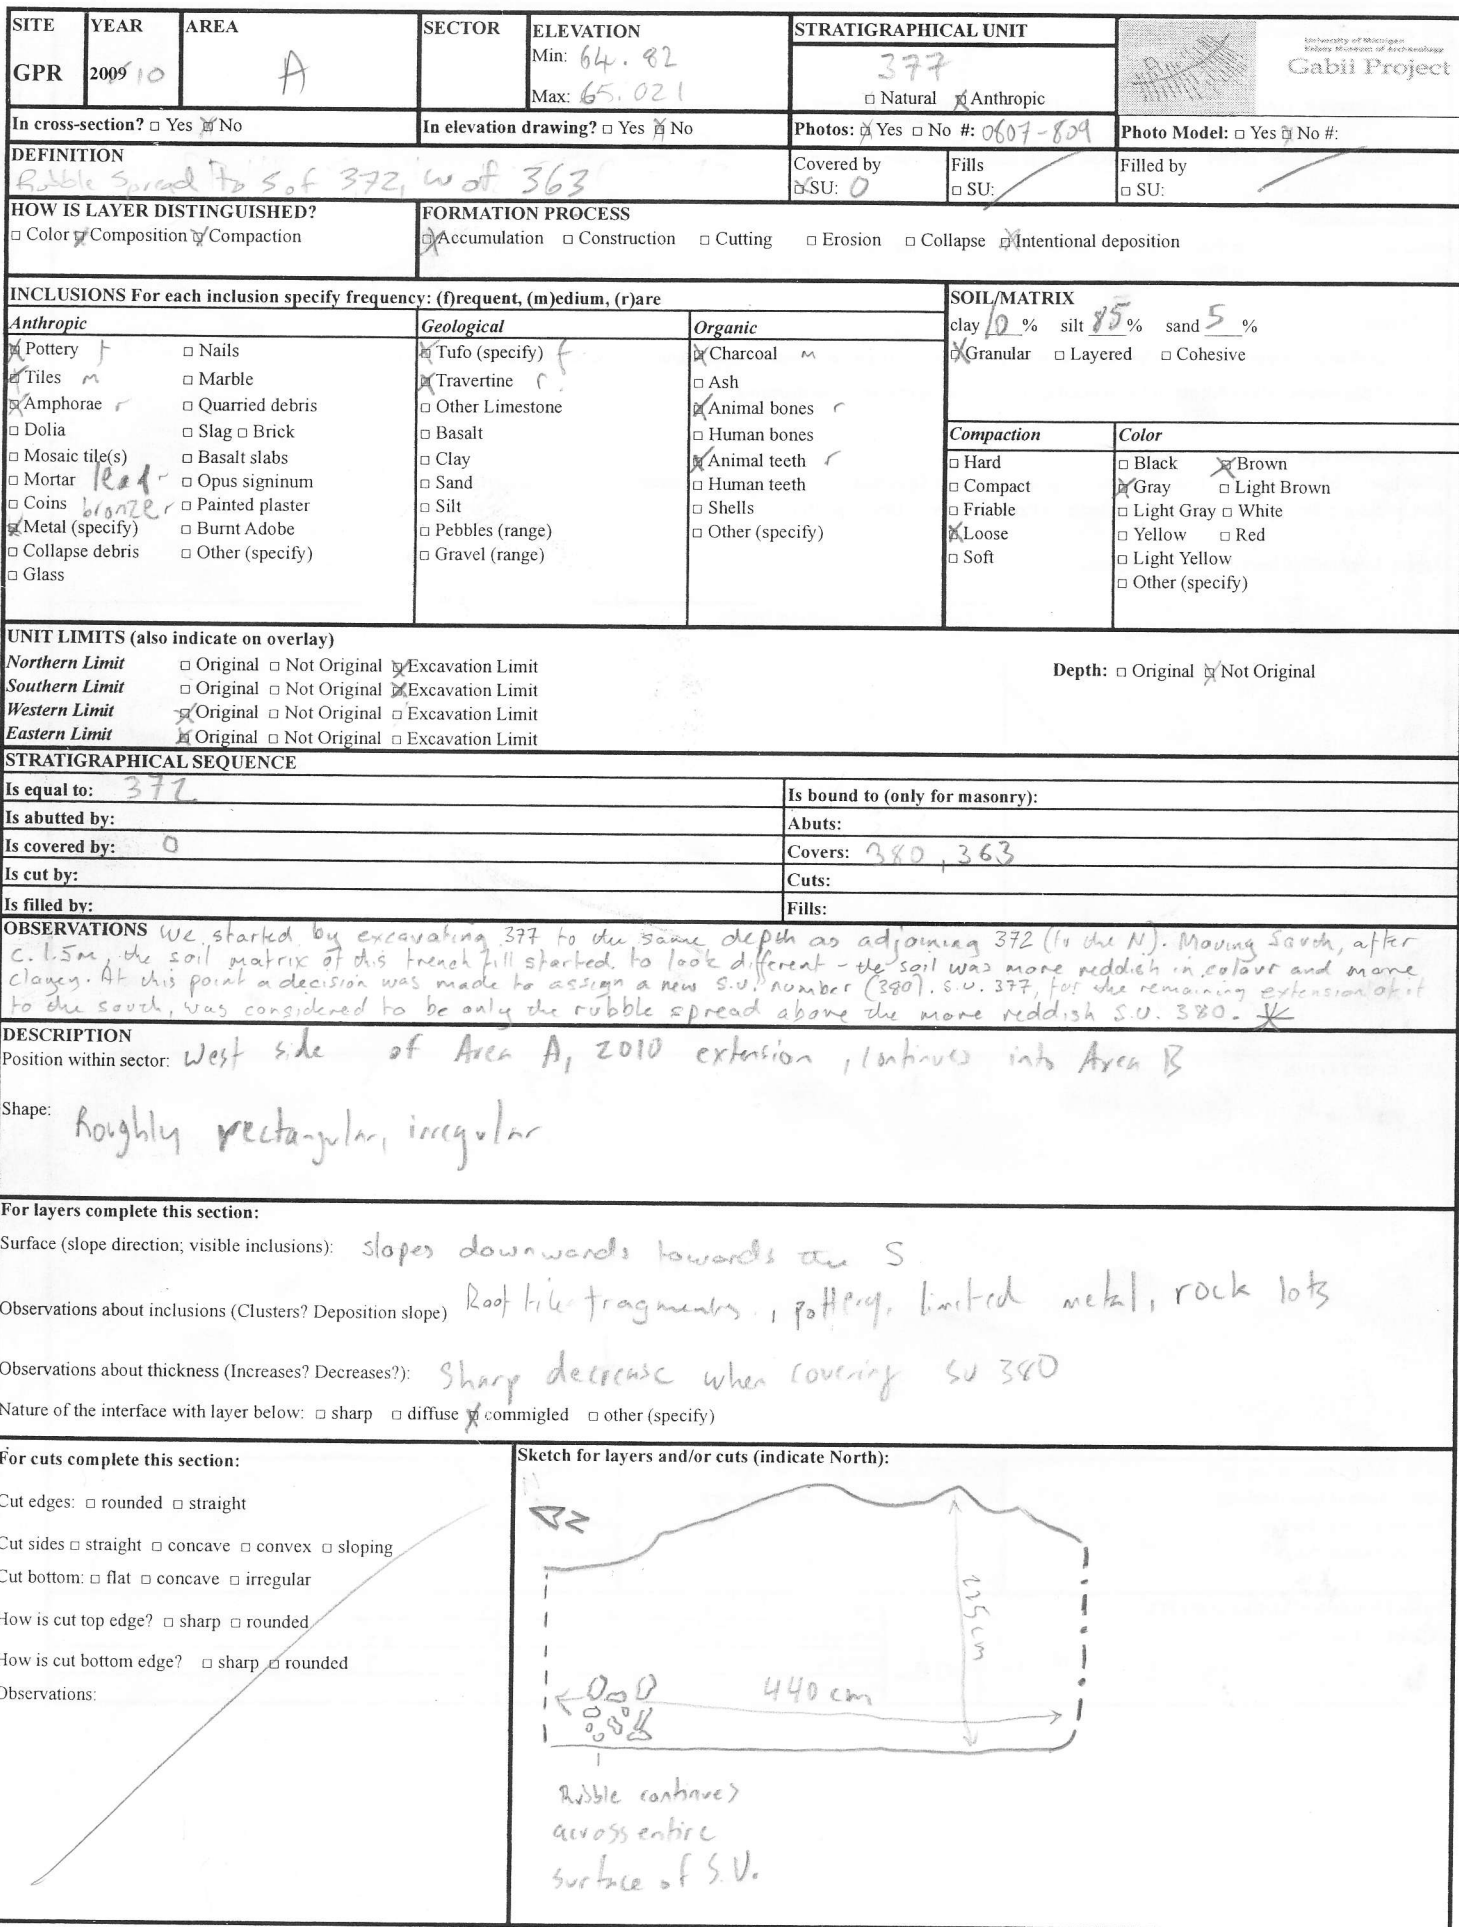 SITE YEAR AREA SECTOR ELEVATION STRATIGRAPHICAL UNIT
GPR 2009 10 A Min: 64.82 377
Max: 65.021 □ Natural ☒ Anthropic
University of Michigan
Kelsey Museum of Archaeology
Gabii Project
In cross-section? □ Yes ☒ No In elevation drawing? □ Yes ☒ No Photos: ☒ Yes □ No #: 0807-809 Photo Model: □ Yes ☒ No #:
DEFINITION Covered by Fills Filled by
Rubble Spread to S of 372, W of 363 ☒ SU: 0 □ SU: □ SU:
HOW IS LAYER DISTINGUISHED? FORMATION PROCESS
□ Color ☒ Composition ☒ Compaction ☒ Accumulation □ Construction □ Cutting □ Erosion □ Collapse ☒ Intentional deposition
INCLUSIONS For each inclusion specify frequency: (f)requent, (m)edium, (r)are
Anthropic
☒ Pottery f □ Nails
☒ Tiles m □ Marble
☒ Amphorae r □ Quarried debris
□ Dolia □ Slag □ Brick
□ Mosaic tile(s) □ Basalt slabs
□ Mortar lead - □ Opus signinum
□ Coins bronze r □ Painted plaster
☒ Metal (specify) □ Burnt Adobe
□ Collapse debris □ Other (specify)
□ Glass
Geological
☒ Tufo (specify) f
☒ Travertine r
□ Other Limestone
□ Basalt
□ Clay
□ Sand
□ Silt
□ Pebbles (range)
□ Gravel (range)
Organic
☒ Charcoal m
□ Ash
☒ Animal bones r
□ Human bones
☒ Animal teeth r
□ Human teeth
□ Shells
□ Other (specify)
SOIL/MATRIX
clay 10 % silt 85 % sand 5 %
☒ Granular □ Layered □ Cohesive
Compaction
□ Hard
□ Compact
□ Friable
☒ Loose
□ Soft
Color
□ Black ☒ Brown
☒ Gray □ Light Brown
□ Light Gray □ White
□ Yellow □ Red
□ Light Yellow
□ Other (specify)
UNIT LIMITS (also indicate on overlay)
Northern Limit □ Original □ Not Original ☒ Excavation Limit Depth: □ Original ☒ Not Original
Southern Limit □ Original □ Not Original ☒ Excavation Limit
Western Limit ☒ Original □ Not Original □ Excavation Limit
Eastern Limit ☒ Original □ Not Original □ Excavation Limit
STRATIGRAPHICAL SEQUENCE
Is equal to: 372 Is bound to (only for masonry):
Is abutted by: Abuts:
Is covered by: 0 Covers: 380, 363
Is cut by: Cuts:
Is filled by: Fills:
OBSERVATIONS We started by excavating 377 to the same depth as adjoining 372 (to the N). Moving South, after
c. 1.5m, the soil matrix of this trench fill started to look different - the soil was more reddish in colour and more
clayey. At this point a decision was made to assign a new S.U. number (380). S.U. 377, for the remaining extension of it
to the south, was considered to be only the rubble spread above the more reddish S.U. 380. *
DESCRIPTION
Position within sector: West side of Area A, 2010 extension, continues into Area B
Shape: Roughly rectangular, irregular
For layers complete this section:
Surface (slope direction; visible inclusions): slopes downwards towards the S
Observations about inclusions (Clusters? Deposition slope) Roof tile fragments, pottery, limited metal, rock lots
Observations about thickness (Increases? Decreases?): Sharp decrease when covering SU 380
Nature of the interface with layer below: □ sharp □ diffuse ☒ commigled □ other (specify)
For cuts complete this section:
Cut edges: □ rounded □ straight
Cut sides □ straight □ concave □ convex □ sloping
Cut bottom: □ flat □ concave □ irregular
How is cut top edge? □ sharp □ rounded
How is cut bottom edge? □ sharp □ rounded
Observations:
Sketch for layers and/or cuts (indicate North):
N
225cm
440 cm
Rubble continues
across entire
surface of S.U.